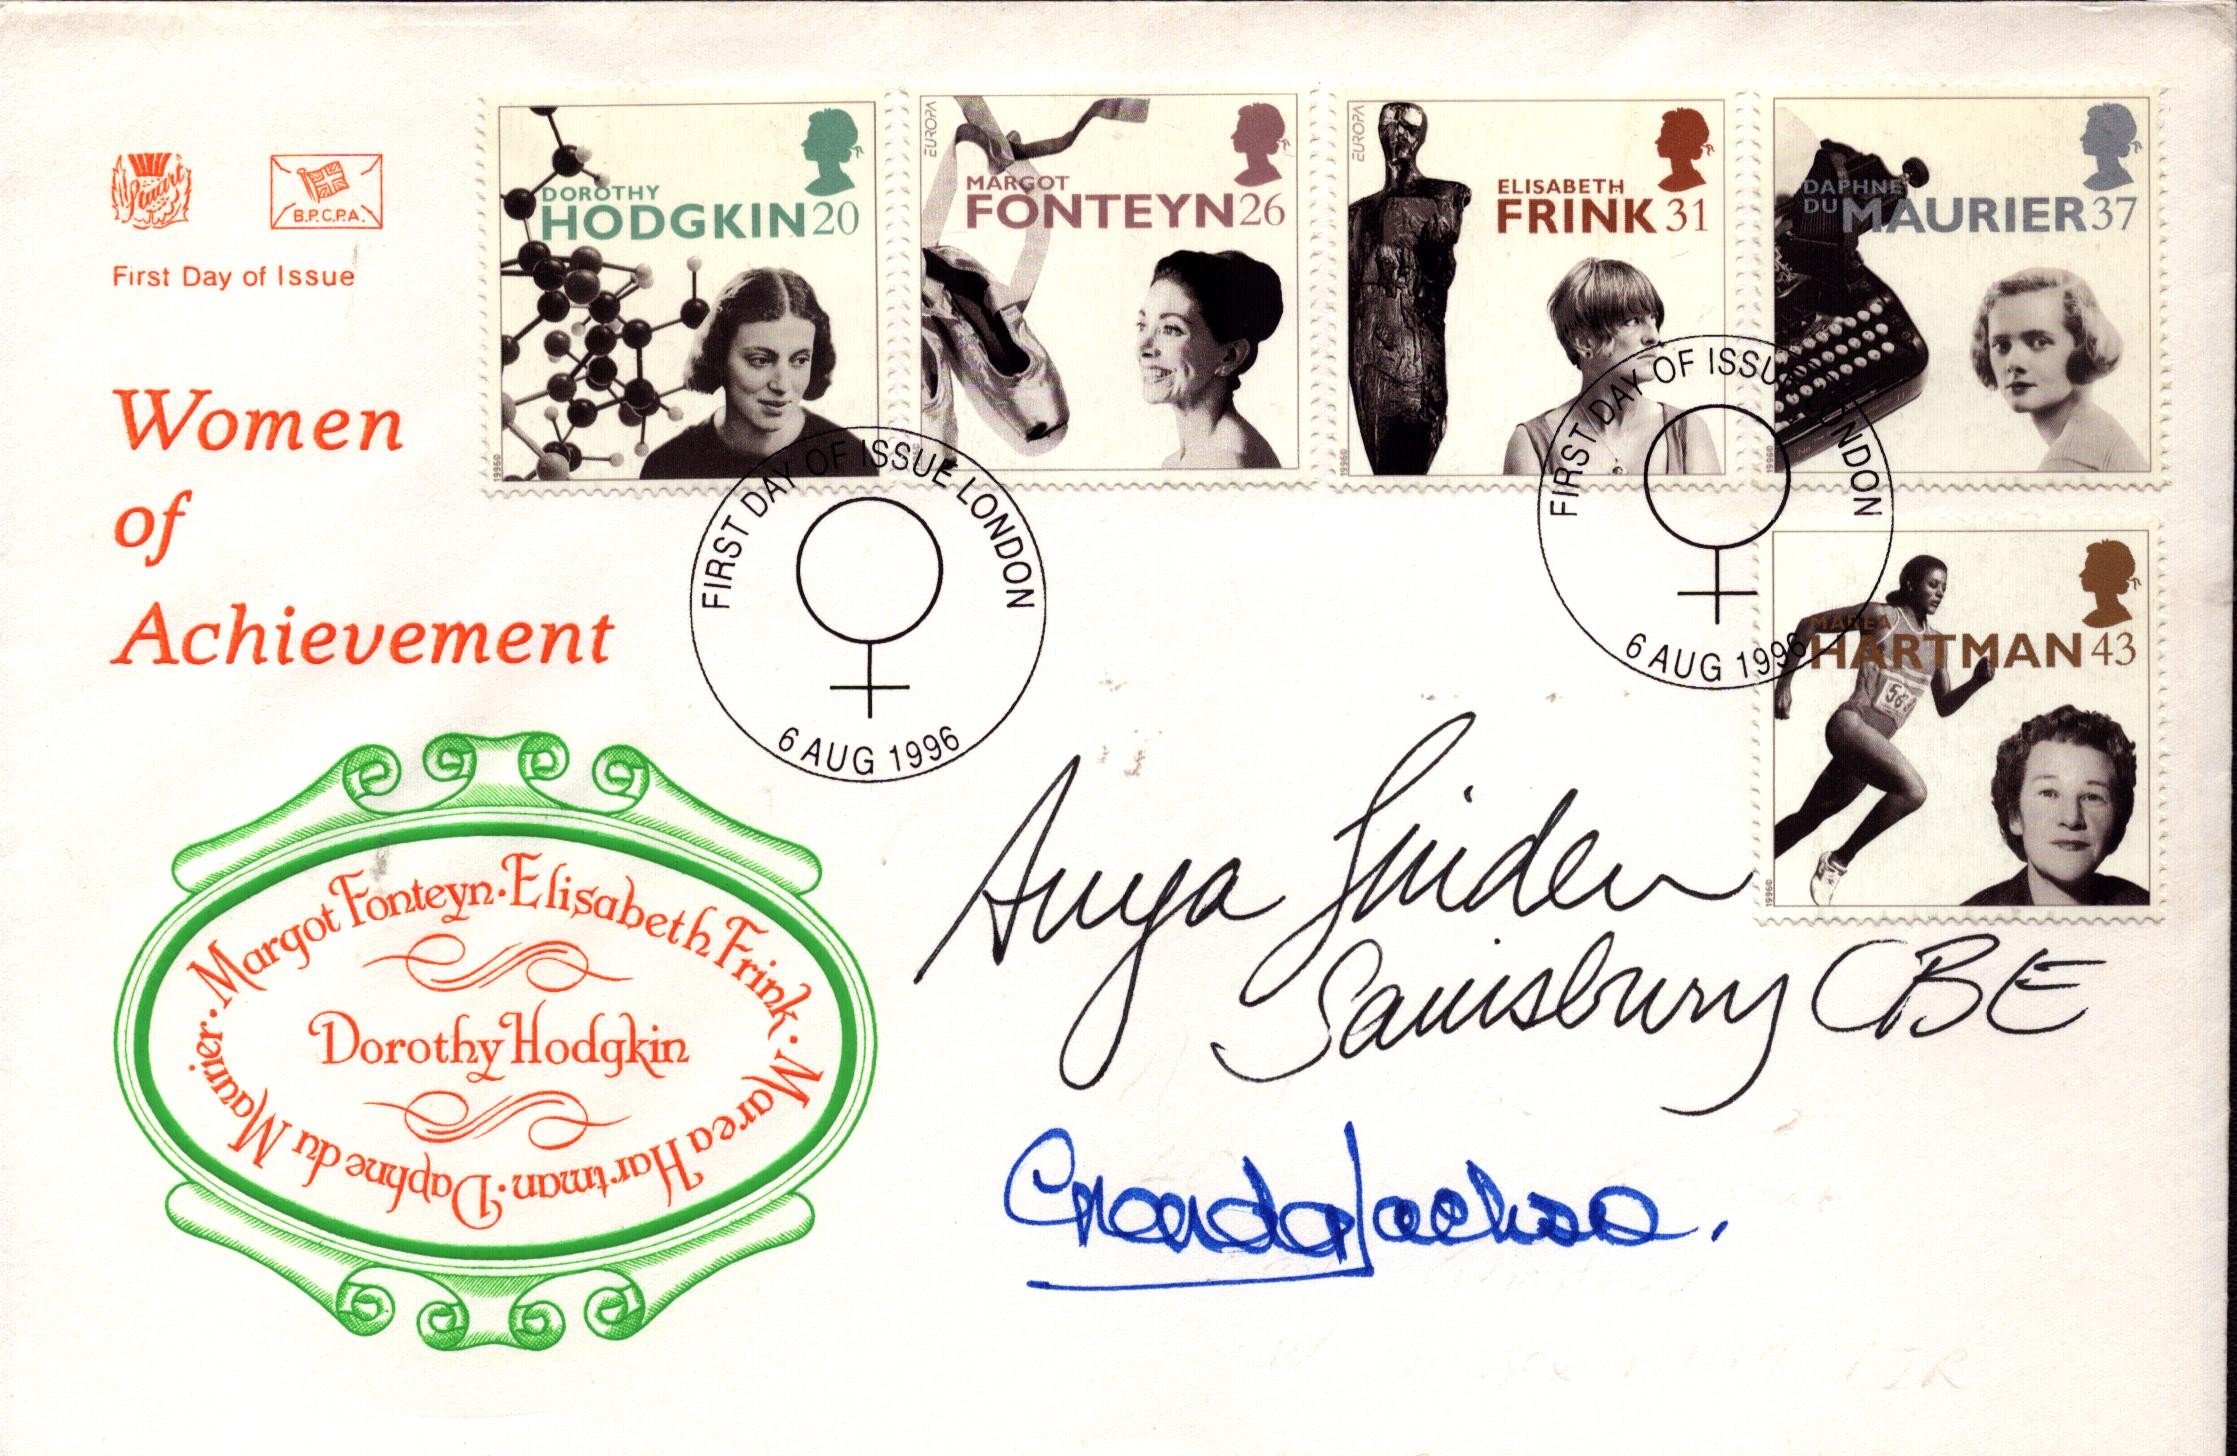 Stuart
B.P.C.P.A.
First Day of Issue
Women
of
Achievement
DOROTHY
HODGKIN 20
1996©
EUROPA
MARGOT
FONTEYN 26
EUROPA
ELISABETH
FRINK 31
1996©
DAPHNE
DU MAURIER 37
1996©
MAREA
HARTMAN 43
1996©
FIRST DAY OF ISSUE LONDON
6 AUG 1996
FIRST DAY OF ISSUE LONDON
6 AUG 1996
Margot Fonteyn · Elisabeth Frink · Marea Hartman · Daphne du Maurier ·
Dorothy Hodgkin
Anya Linden
Sainsbury CBE
Glenda Jackson.